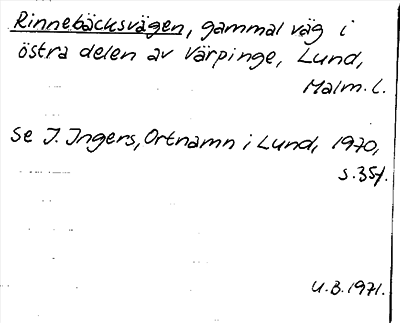 Rinnebäcksvägen, gammal väg i
östra delen av Värpinge, Lund,
Malm. l.
Se J. Ingers, Ortnamn i Lund, 1970,
s. 35f.
U.B. 1971.